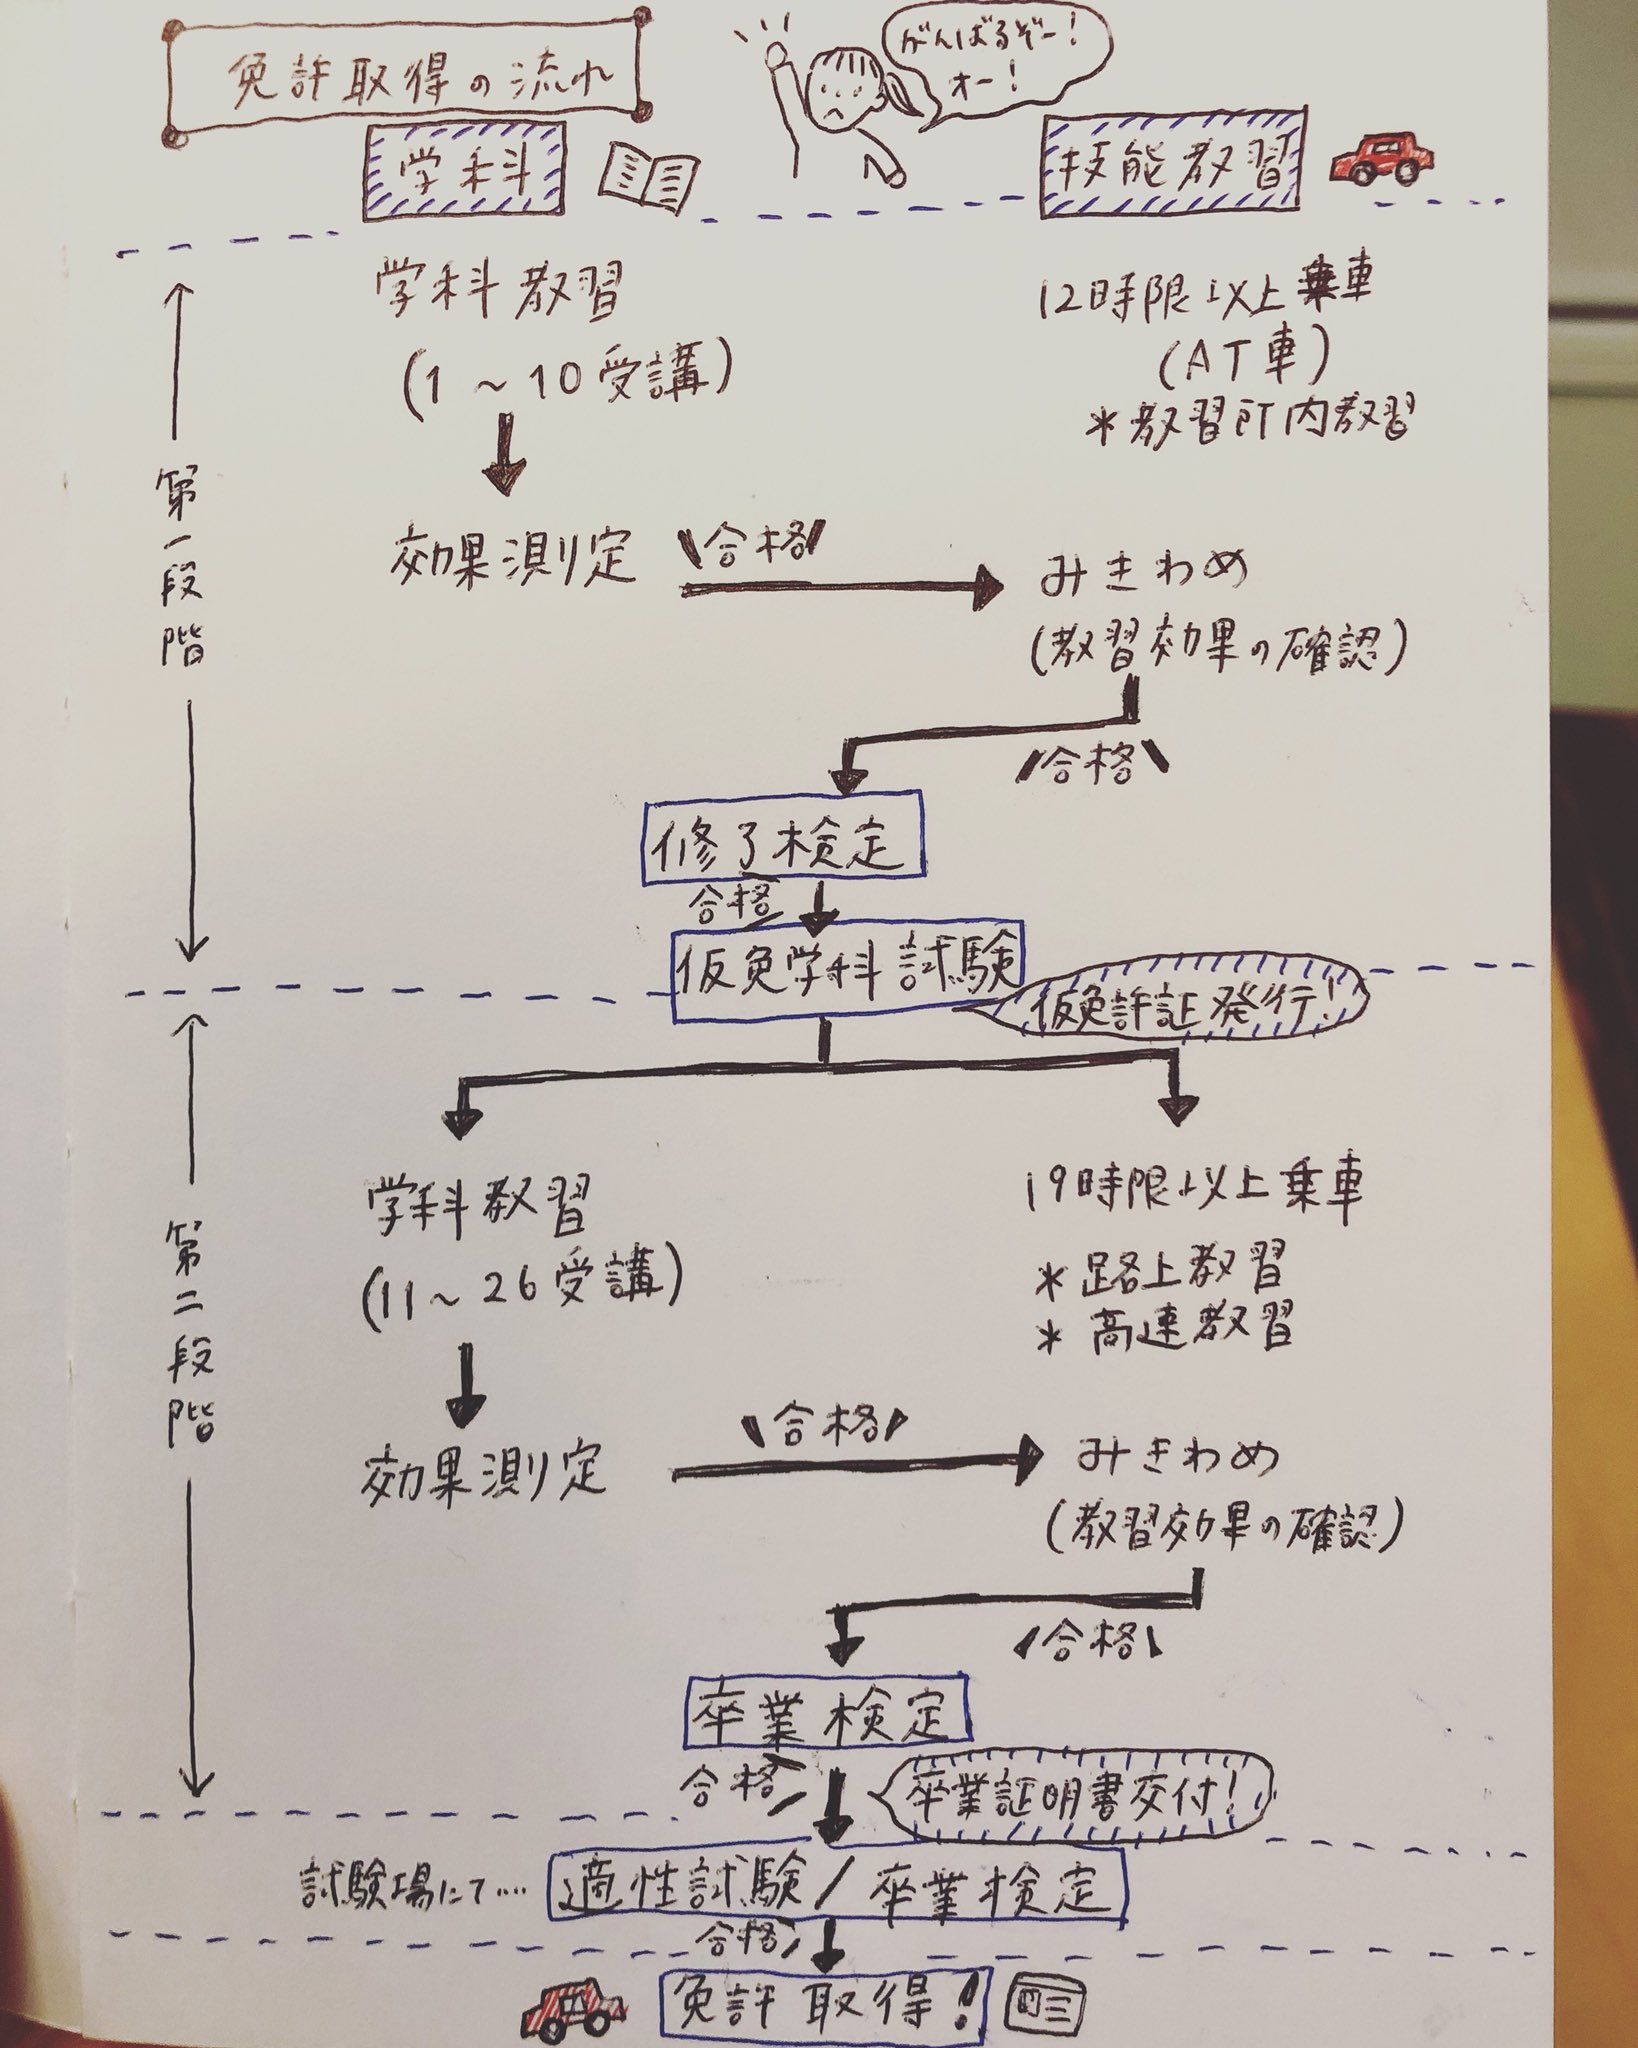 免許取得の流れ
がんばるぞー!
オー!
学科
技能教習
学科教習
(1～10受講)
12時限以上乗車
(AT車)
*教習所内教習
第一段階
効果測定
合格
みきわめ
(教習効果の確認)
合格
修了検定
合格
仮免学科試験
仮免許証発行!
第二段階
学科教習
(11～26受講)
19時限以上乗車
*路上教習
*高速教習
効果測定
合格
みきわめ
(教習効果の確認)
合格
卒業検定
合格
卒業証明書交付!
試験場にて....
適性試験/卒業検定
合格
免許取得!